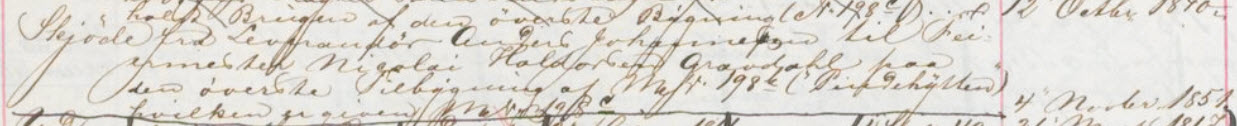 Brugen af den överste Bygning (N. 198c) . . . 12 Octbr. 1870
Skjöde fra Leverandör Anders Johannesen til Fei-
ermester Nigolai Haldorsen Gravdahl paa
den överste Tilbygning af Ma. N. 198b ("Findehytten")
hvilken er given Ma. N. 198c 4 Novbr. 1851